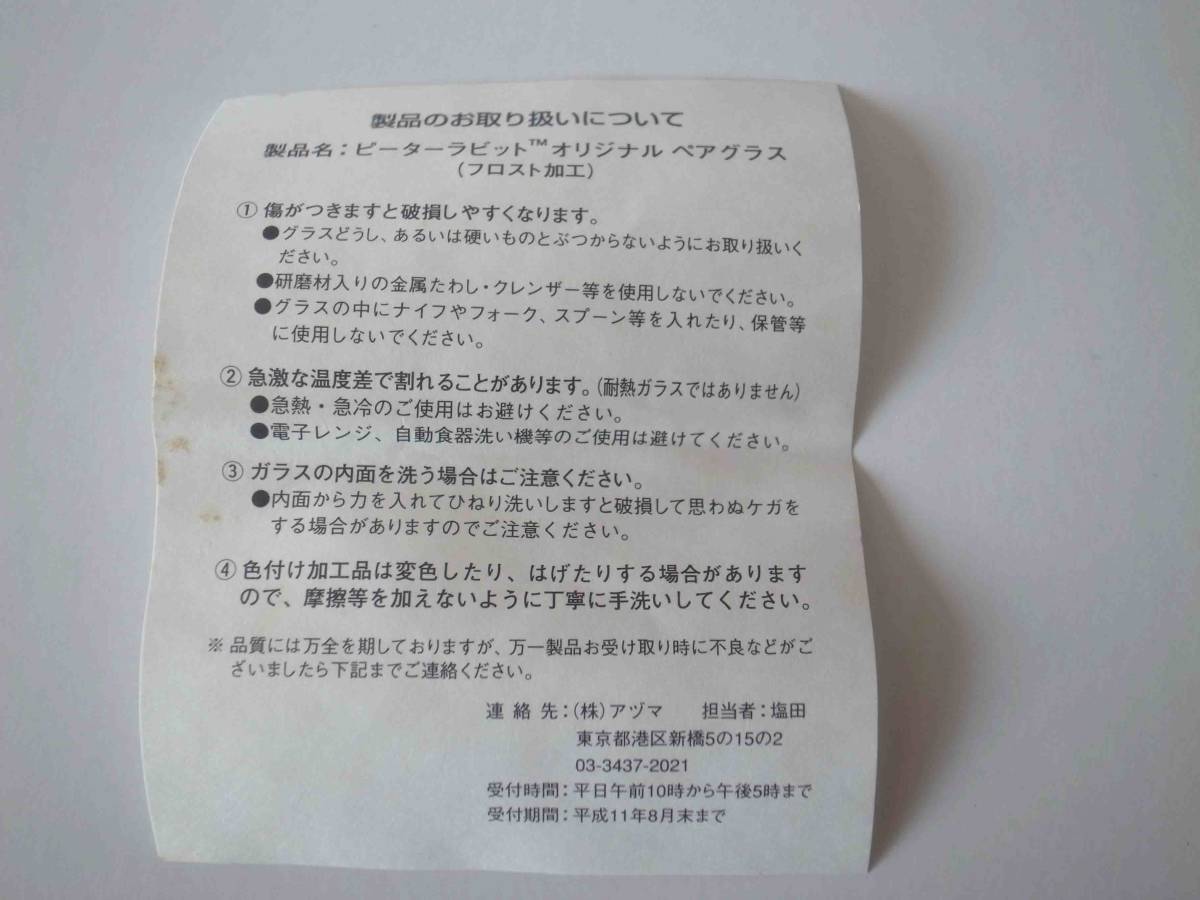 製品のお取り扱いについて
製品名：ピーターラビット™オリジナル ペアグラス
（フロスト加工）
① 傷がつきますと破損しやすくなります。
●グラスどうし、あるいは硬いものとぶつからないようにお取り扱いく
ださい。
●研磨材入りの金属たわし・クレンザー等を使用しないでください。
●グラスの中にナイフやフォーク、スプーン等を入れたり、保管等
に使用しないでください。
② 急激な温度差で割れることがあります。（耐熱ガラスではありません）
●急熱・急冷のご使用はお避けください。
●電子レンジ、自動食器洗い機等のご使用は避けてください。
③ ガラスの内面を洗う場合はご注意ください。
●内面から力を入れてひねり洗いしますと破損して思わぬケガを
する場合がありますのでご注意ください。
④ 色付け加工品は変色したり、はげたりする場合があります
ので、摩擦等を加えないように丁寧に手洗いしてください。
※ 品質には万全を期しておりますが、万一製品お受け取り時に不良などがご
ざいましたら下記までご連絡ください。
連 絡 先：（株）アヅマ　担当者：塩田
東京都港区新橋5の15の2
03-3437-2021
受付時間：平日午前10時から午後5時まで
受付期間：平成11年8月末まで